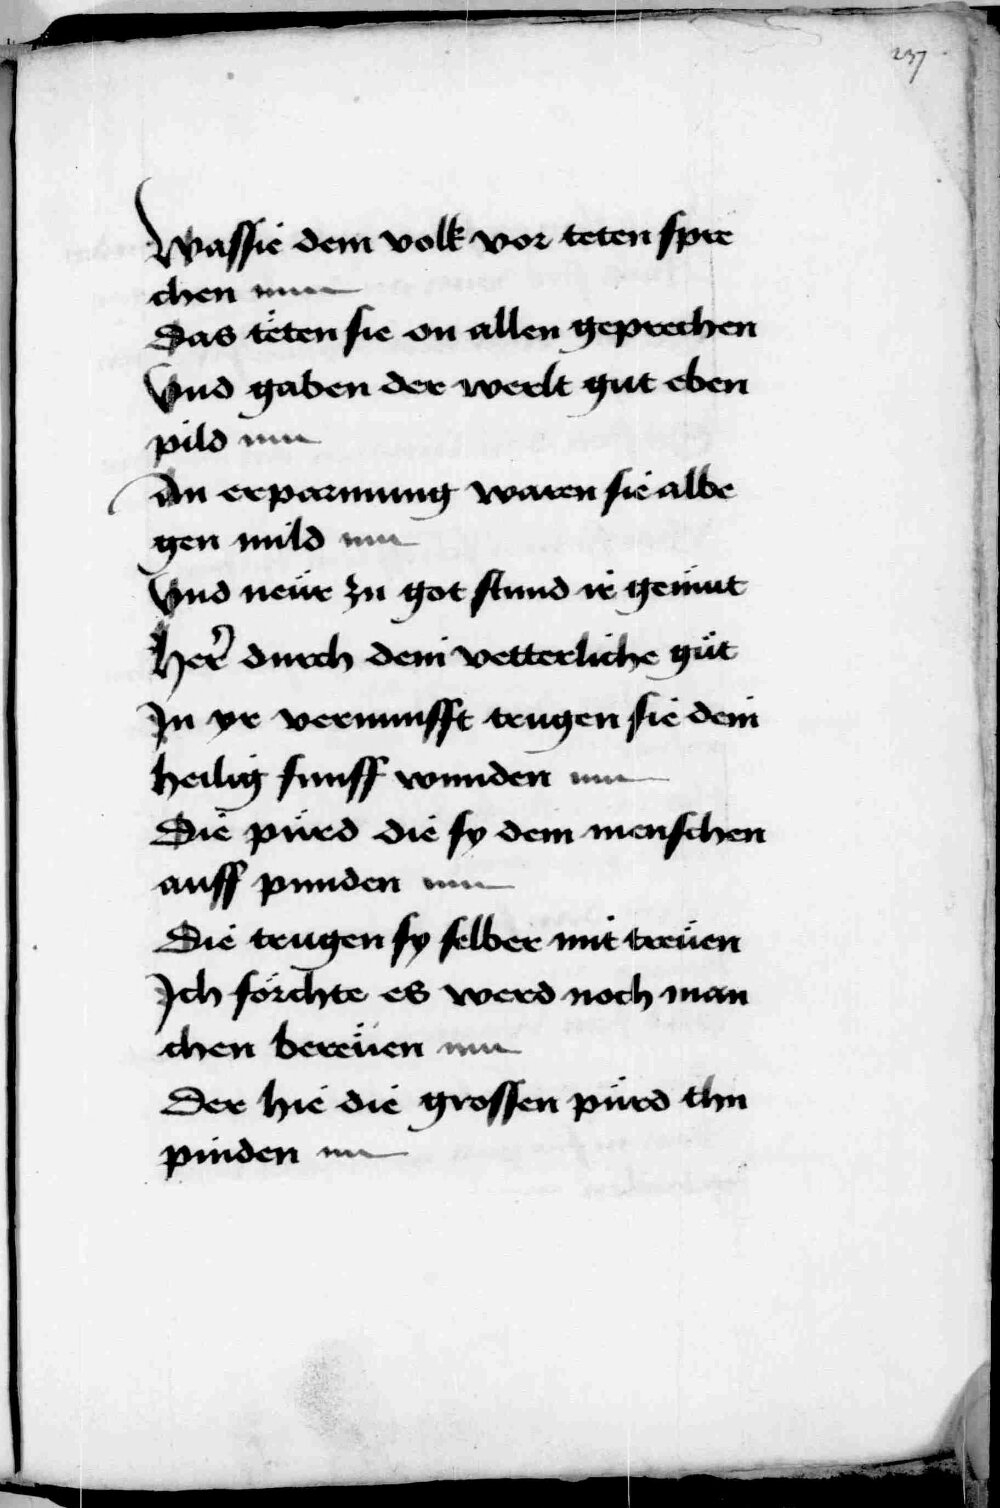 237
Wassie dem volk vor teten spre
chen
Das tëten sie on allen geprechen
Vnd gaben der werlt gut eben
pild
An erparmung waren sie albe
gen mild
Vnd neür zu got stund ir gemüt
Her̃ durch dein vetterliche güt
In yr vernunfft trugen sie dein
heilig funff wunden
Die pürd die sy dem menschen
auff punden
Die trugen sy selber mit treüen
Ich förchte es werd noch man
chen bereüen
Der hie die grossen pürd thu
pinden